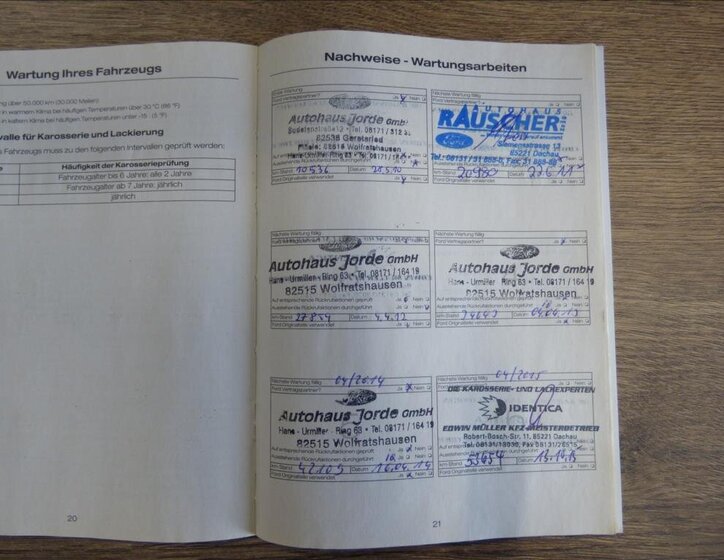 Wartung Ihres Fahrzeugs
ng über 50.000 km (30.000 Meilen)
in warmem Klima bei häufigen Temperaturen über 30 °C (86 °F)
in kaltem Klima bei häufigen Temperaturen unter -15 (5 °F)
valle für Karosserie und Lackierung
s Fahrzeugs muss zu den folgenden Intervallen geprüft werden:
Häufigkeit der Karosserieprüfung
Fahrzeugalter bis 6 Jahre: alle 2 Jahre
Fahrzeugalter ab 7 Jahre: jährlich
jährlich
20
Nachweise - Wartungsarbeiten
Ford Vertragspartner? Ja Nein
Autohaus Jorde GmbH
82538 Geretsried
Filiale: 82515 Wolfratshausen
km-Stand 10536 Datum
Ford Originalteile verwendet Ja Nein
Nächste Wartung fällig
Ford Vertragspartner? Ja Nein
AUTOHAUS
RAUSCHER
Ford
Siemensstrasse
85221 Dachau
km-Stand 20980 Datum
Ford Originalteile verwendet Ja Nein
Nächste Wartung fällig
Ford Vertragspartner? Ja Nein
Autohaus Jorde GmbH
Hans - Urmiller - Ring 63 • Tel. 08171 / 164 19
82515 Wolfratshausen
Auf entsprechende Rückrufaktionen geprüft Ja Nein
Ausstehende Rückrufaktionen durchgeführt Ja Nein
km-Stand 27854 Datum 4.4.12
Ford Originalteile verwendet Ja Nein
Nächste Wartung fällig
Ford Vertragspartner? Ja Nein
Autohaus Jorde GmbH
Hans - Urmiller - Ring 63 • Tel. 08171 / 164 19
82515 Wolfratshausen
Auf entsprechende Rückrufaktionen geprüft Ja Nein
Ausstehende Rückrufaktionen durchgeführt Ja Nein
km-Stand Datum
Ford Originalteile verwendet Ja Nein
Nächste Wartung fällig 04/2014
Ford Vertragspartner? Ja Nein
Autohaus Jorde GmbH
Hans - Urmiller - Ring 63 • Tel. 08171 / 164 19
82515 Wolfratshausen
Auf entsprechende Rückrufaktionen geprüft Ja Nein
Ausstehende Rückrufaktionen durchgeführt Ja Nein
km-Stand 42105 Datum 16.04.14
Ford Originalteile verwendet Ja Nein
Nächste Wartung fällig 04/2015
DIE KAROSSERIE- UND LACKEXPERTEN
IDENTICA
EDWIN MÜLLER KFZ-MEISTERBETRIEB
Robert-Bosch-Str. 11, 85221 Dachau
km-Stand 53654 Datum
Ford Originalteile verwendet Ja Nein
21